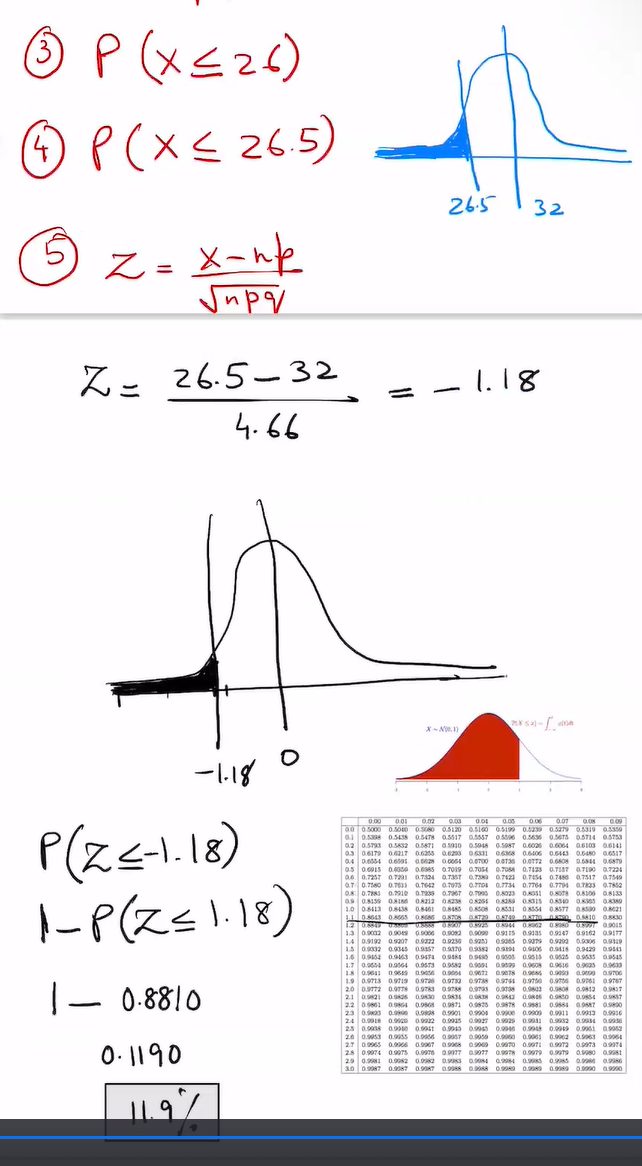 ③ P (X ≤ 26)
④ P (X ≤ 26.5)
26.5 32
⑤ Z = x - np / √npq
Z = 26.5 - 32 / 4.66 = - 1.18
-1.18 0
X ~ N(0, 1)
P(Z ≤ -1.18)
1 - P(Z ≤ 1.18)
1 - 0.8810
0.1190
11.9%
0.00 0.01 0.02 0.03 0.04 0.05 0.06 0.07 0.08 0.09
0.0 0.5000 0.5040 0.5080 0.5120 0.5160 0.5199 0.5239 0.5279 0.5319 0.5359
0.1 0.5398 0.5438 0.5478 0.5517 0.5557 0.5596 0.5636 0.5675 0.5714 0.5753
0.2 0.5793 0.5832 0.5871 0.5910 0.5948 0.5987 0.6026 0.6064 0.6103 0.6141
0.3 0.6179 0.6217 0.6255 0.6293 0.6331 0.6368 0.6406 0.6443 0.6480 0.6517
0.4 0.6554 0.6591 0.6628 0.6664 0.6700 0.6736 0.6772 0.6808 0.6844 0.6879
0.5 0.6915 0.6950 0.6985 0.7019 0.7054 0.7088 0.7123 0.7157 0.7190 0.7224
0.6 0.7257 0.7291 0.7324 0.7357 0.7389 0.7422 0.7454 0.7486 0.7517 0.7549
0.7 0.7580 0.7611 0.7642 0.7673 0.7704 0.7734 0.7764 0.7794 0.7823 0.7852
0.8 0.7881 0.7910 0.7939 0.7967 0.7995 0.8023 0.8051 0.8078 0.8106 0.8133
0.9 0.8159 0.8186 0.8212 0.8238 0.8264 0.8289 0.8315 0.8340 0.8365 0.8389
1.0 0.8413 0.8438 0.8461 0.8485 0.8508 0.8531 0.8554 0.8577 0.8599 0.8621
1.1 0.8643 0.8665 0.8686 0.8708 0.8729 0.8749 0.8770 0.8790 0.8810 0.8830
1.2 0.8849 0.8869 0.8888 0.8907 0.8925 0.8944 0.8962 0.8980 0.8997 0.9015
1.3 0.9032 0.9049 0.9066 0.9082 0.9099 0.9115 0.9131 0.9147 0.9162 0.9177
1.4 0.9192 0.9207 0.9222 0.9236 0.9251 0.9265 0.9279 0.9292 0.9306 0.9319
1.5 0.9332 0.9345 0.9357 0.9370 0.9382 0.9394 0.9406 0.9418 0.9429 0.9441
1.6 0.9452 0.9463 0.9474 0.9484 0.9495 0.9505 0.9515 0.9525 0.9535 0.9545
1.7 0.9554 0.9564 0.9573 0.9582 0.9591 0.9599 0.9608 0.9616 0.9625 0.9633
1.8 0.9641 0.9649 0.9656 0.9664 0.9671 0.9678 0.9686 0.9693 0.9699 0.9706
1.9 0.9713 0.9719 0.9726 0.9732 0.9738 0.9744 0.9750 0.9756 0.9761 0.9767
2.0 0.9772 0.9778 0.9783 0.9788 0.9793 0.9798 0.9803 0.9808 0.9812 0.9817
2.1 0.9821 0.9826 0.9830 0.9834 0.9838 0.9842 0.9846 0.9850 0.9854 0.9857
2.2 0.9861 0.9864 0.9868 0.9871 0.9875 0.9878 0.9881 0.9884 0.9887 0.9890
2.3 0.9893 0.9896 0.9898 0.9901 0.9904 0.9906 0.9909 0.9911 0.9913 0.9916
2.4 0.9918 0.9920 0.9922 0.9925 0.9927 0.9929 0.9931 0.9932 0.9934 0.9936
2.5 0.9938 0.9940 0.9941 0.9943 0.9945 0.9946 0.9948 0.9949 0.9951 0.9952
2.6 0.9953 0.9955 0.9956 0.9957 0.9959 0.9960 0.9961 0.9962 0.9963 0.9964
2.7 0.9965 0.9966 0.9967 0.9968 0.9969 0.9970 0.9971 0.9972 0.9973 0.9974
2.8 0.9974 0.9975 0.9976 0.9977 0.9977 0.9978 0.9979 0.9979 0.9980 0.9981
2.9 0.9981 0.9982 0.9982 0.9983 0.9984 0.9984 0.9985 0.9985 0.9986 0.9986
3.0 0.9987 0.9987 0.9987 0.9988 0.9988 0.9989 0.9989 0.9989 0.9990 0.9990